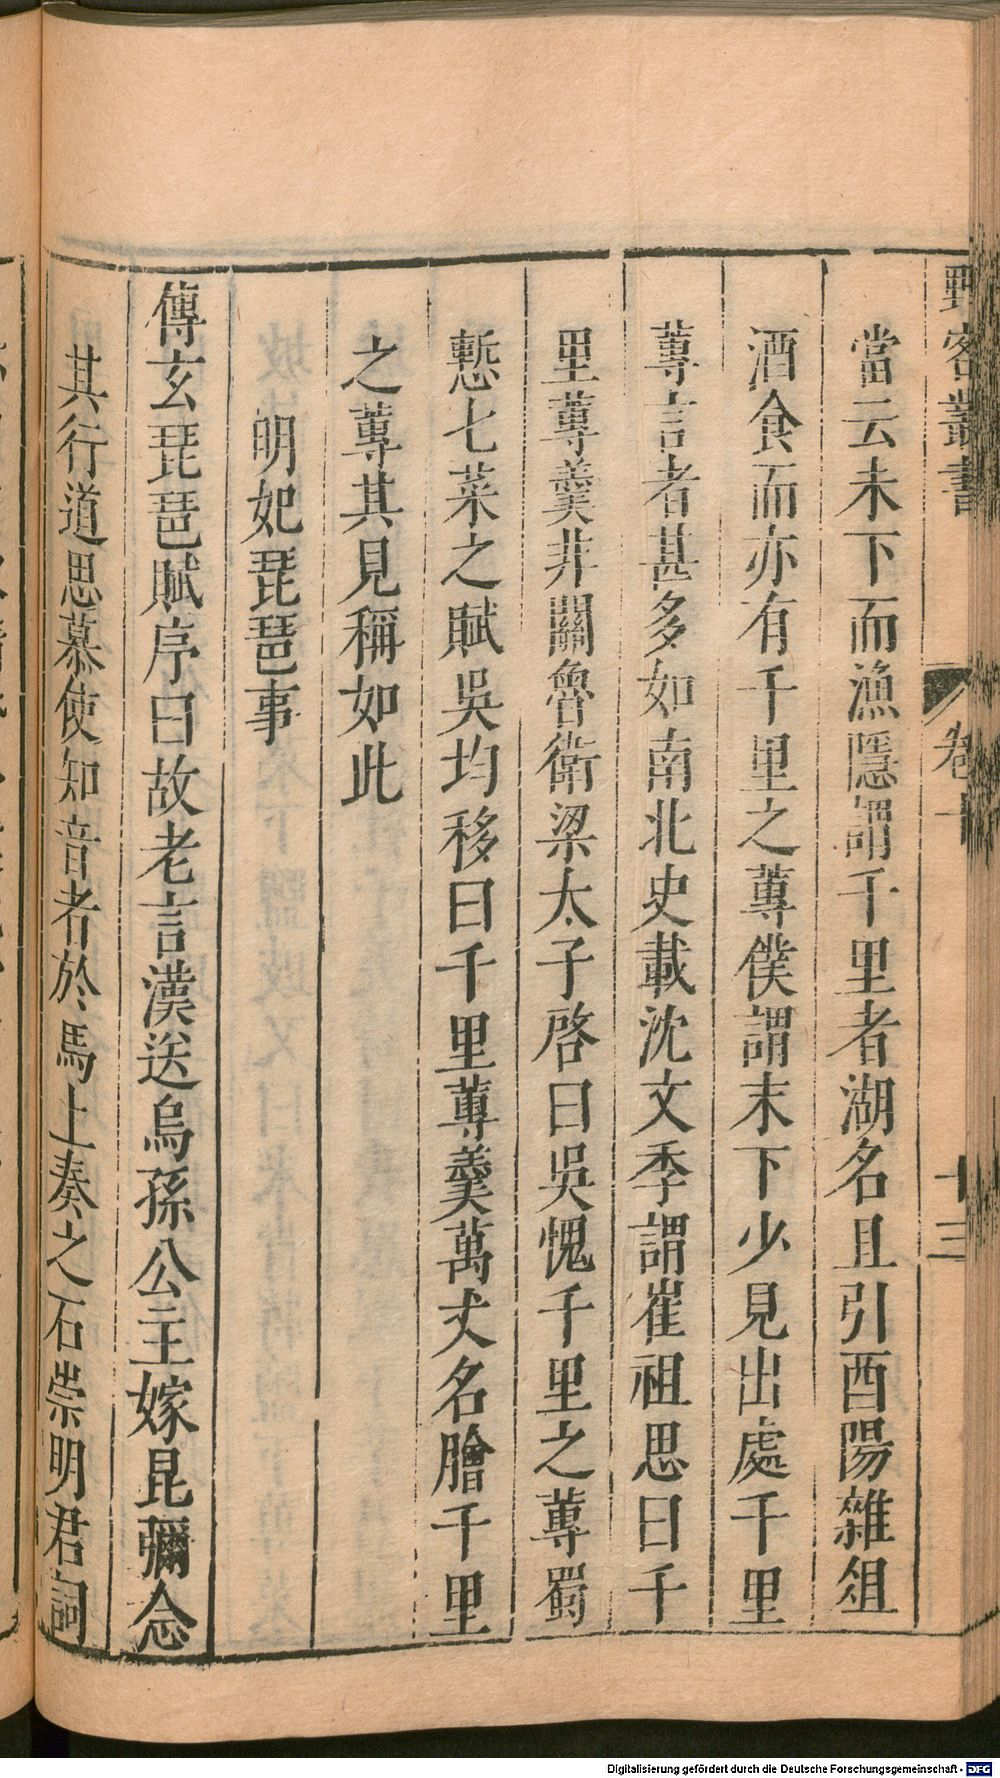 野客叢書 卷十 十三
當云未下而漁隱謂千里者湖名且引酉陽雜俎
酒食而亦有千里之蓴僕謂末下少見出處千里
蓴言者甚多如南北史載沈文季謂崔祖思曰千
里蓴羹非關魯衛梁太子啓曰吳愧千里之蓴蜀
慙七菜之賦吳均移曰千里蓴羹萬丈名膾千里
之蓴其見稱如此
明妃琵琶事
傅玄琵琶賦序曰故老言漢送烏孫公主嫁昆彌念
其行道思慕使知音者於馬上奏之石崇明君詞
Digitalisierung gefördert durch die Deutsche Forschungsgemeinschaft - DFG